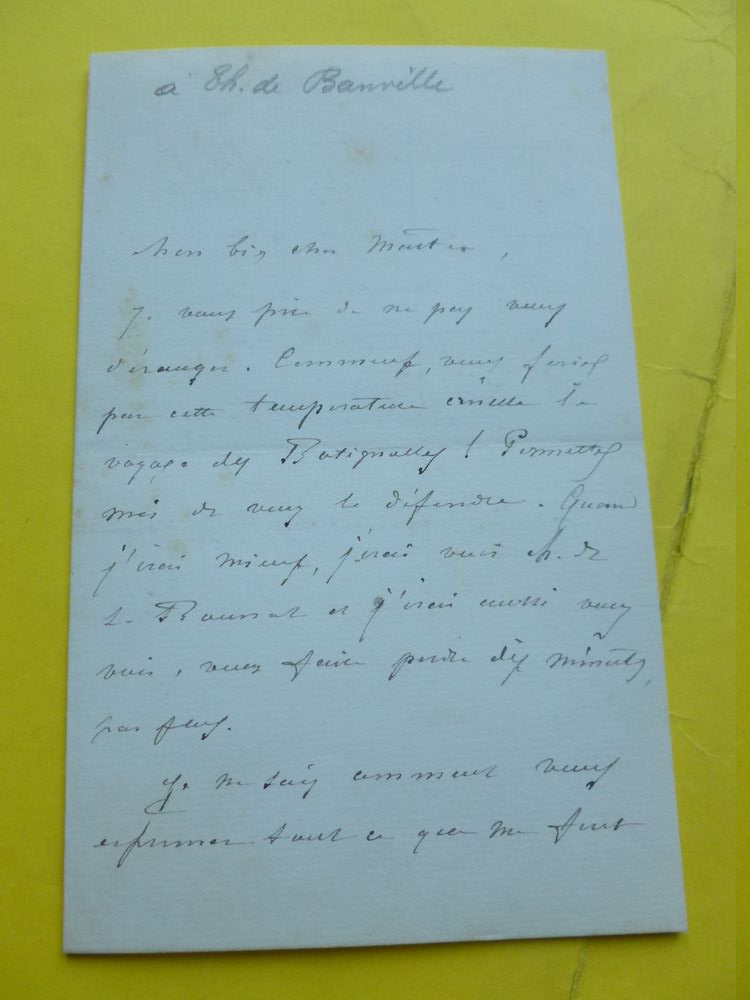 à Th. de Banville
Mon bien cher Maître,
Je vous prie de ne pas vous
déranger. Comment, vous feriez
par cette température cruelle le
voyage des Batignolles ! Permettez
moi de vous le défendre. Quand
j'irai mieux, j'irai voir M. de
et j'irai aussi vous
voir, vous faire perdre dix minutes,
pas plus.
Je ne sais comment vous
exprimer tout ce que me font